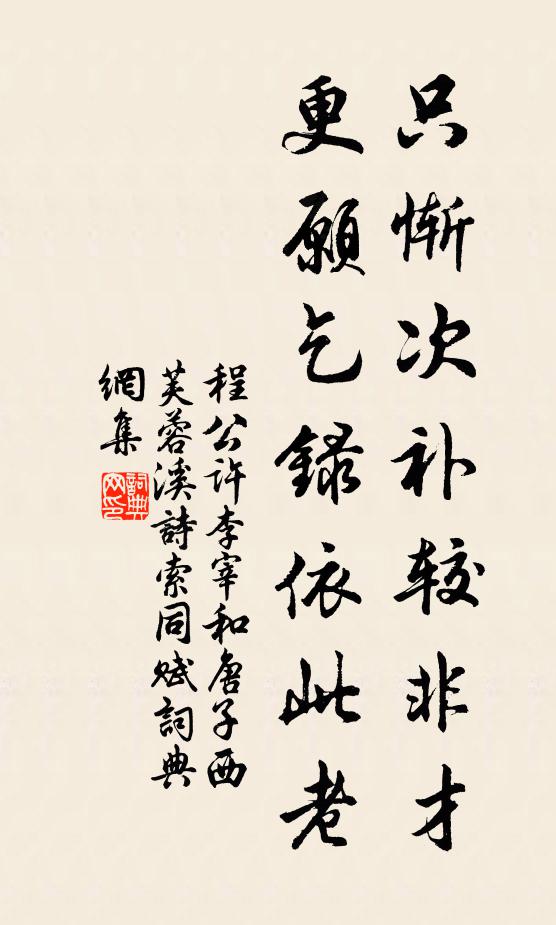 只惭次补较非才
更願乞録依此老
程公许李宰和唐子西
芙蓉溪詩索同赋詞典
網集
詞典
网印